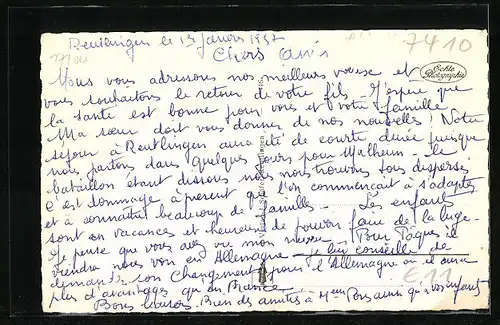 Reutlingen le 1er Janvier 1957
7410
Chers Amis
Echte Photographie
Nous vous adressons nos meilleurs voeux et
vous souhaitons le retour de votre fils. J'espère que
la santé est bonne pour vous et votre famille
Ma soeur doit vous donner de nos nouvelles! Notre
séjour à Reutlingen aura été de courte durée puisque
nous partons dans quelques jours pour Mulheim - le
bataillon étant dissous nous nous trouvons tous dispersés
C'est dommage à présent que l'on commençait à s'adapter
et à connaître beaucoup de familles - Les enfants
sont en vacances et heureux de pouvoir faire de la luge -
Je pense que vous avez vu mon neveu Pour Pâques il
viendra nous voir en Allemagne - je lui conseille de
demander son changement pour l'Allemagne où il aura
plus d'avantages qu'en France
€11
Bons baisers Bien des amitiés à Mme ainsi qu'à vos enfants